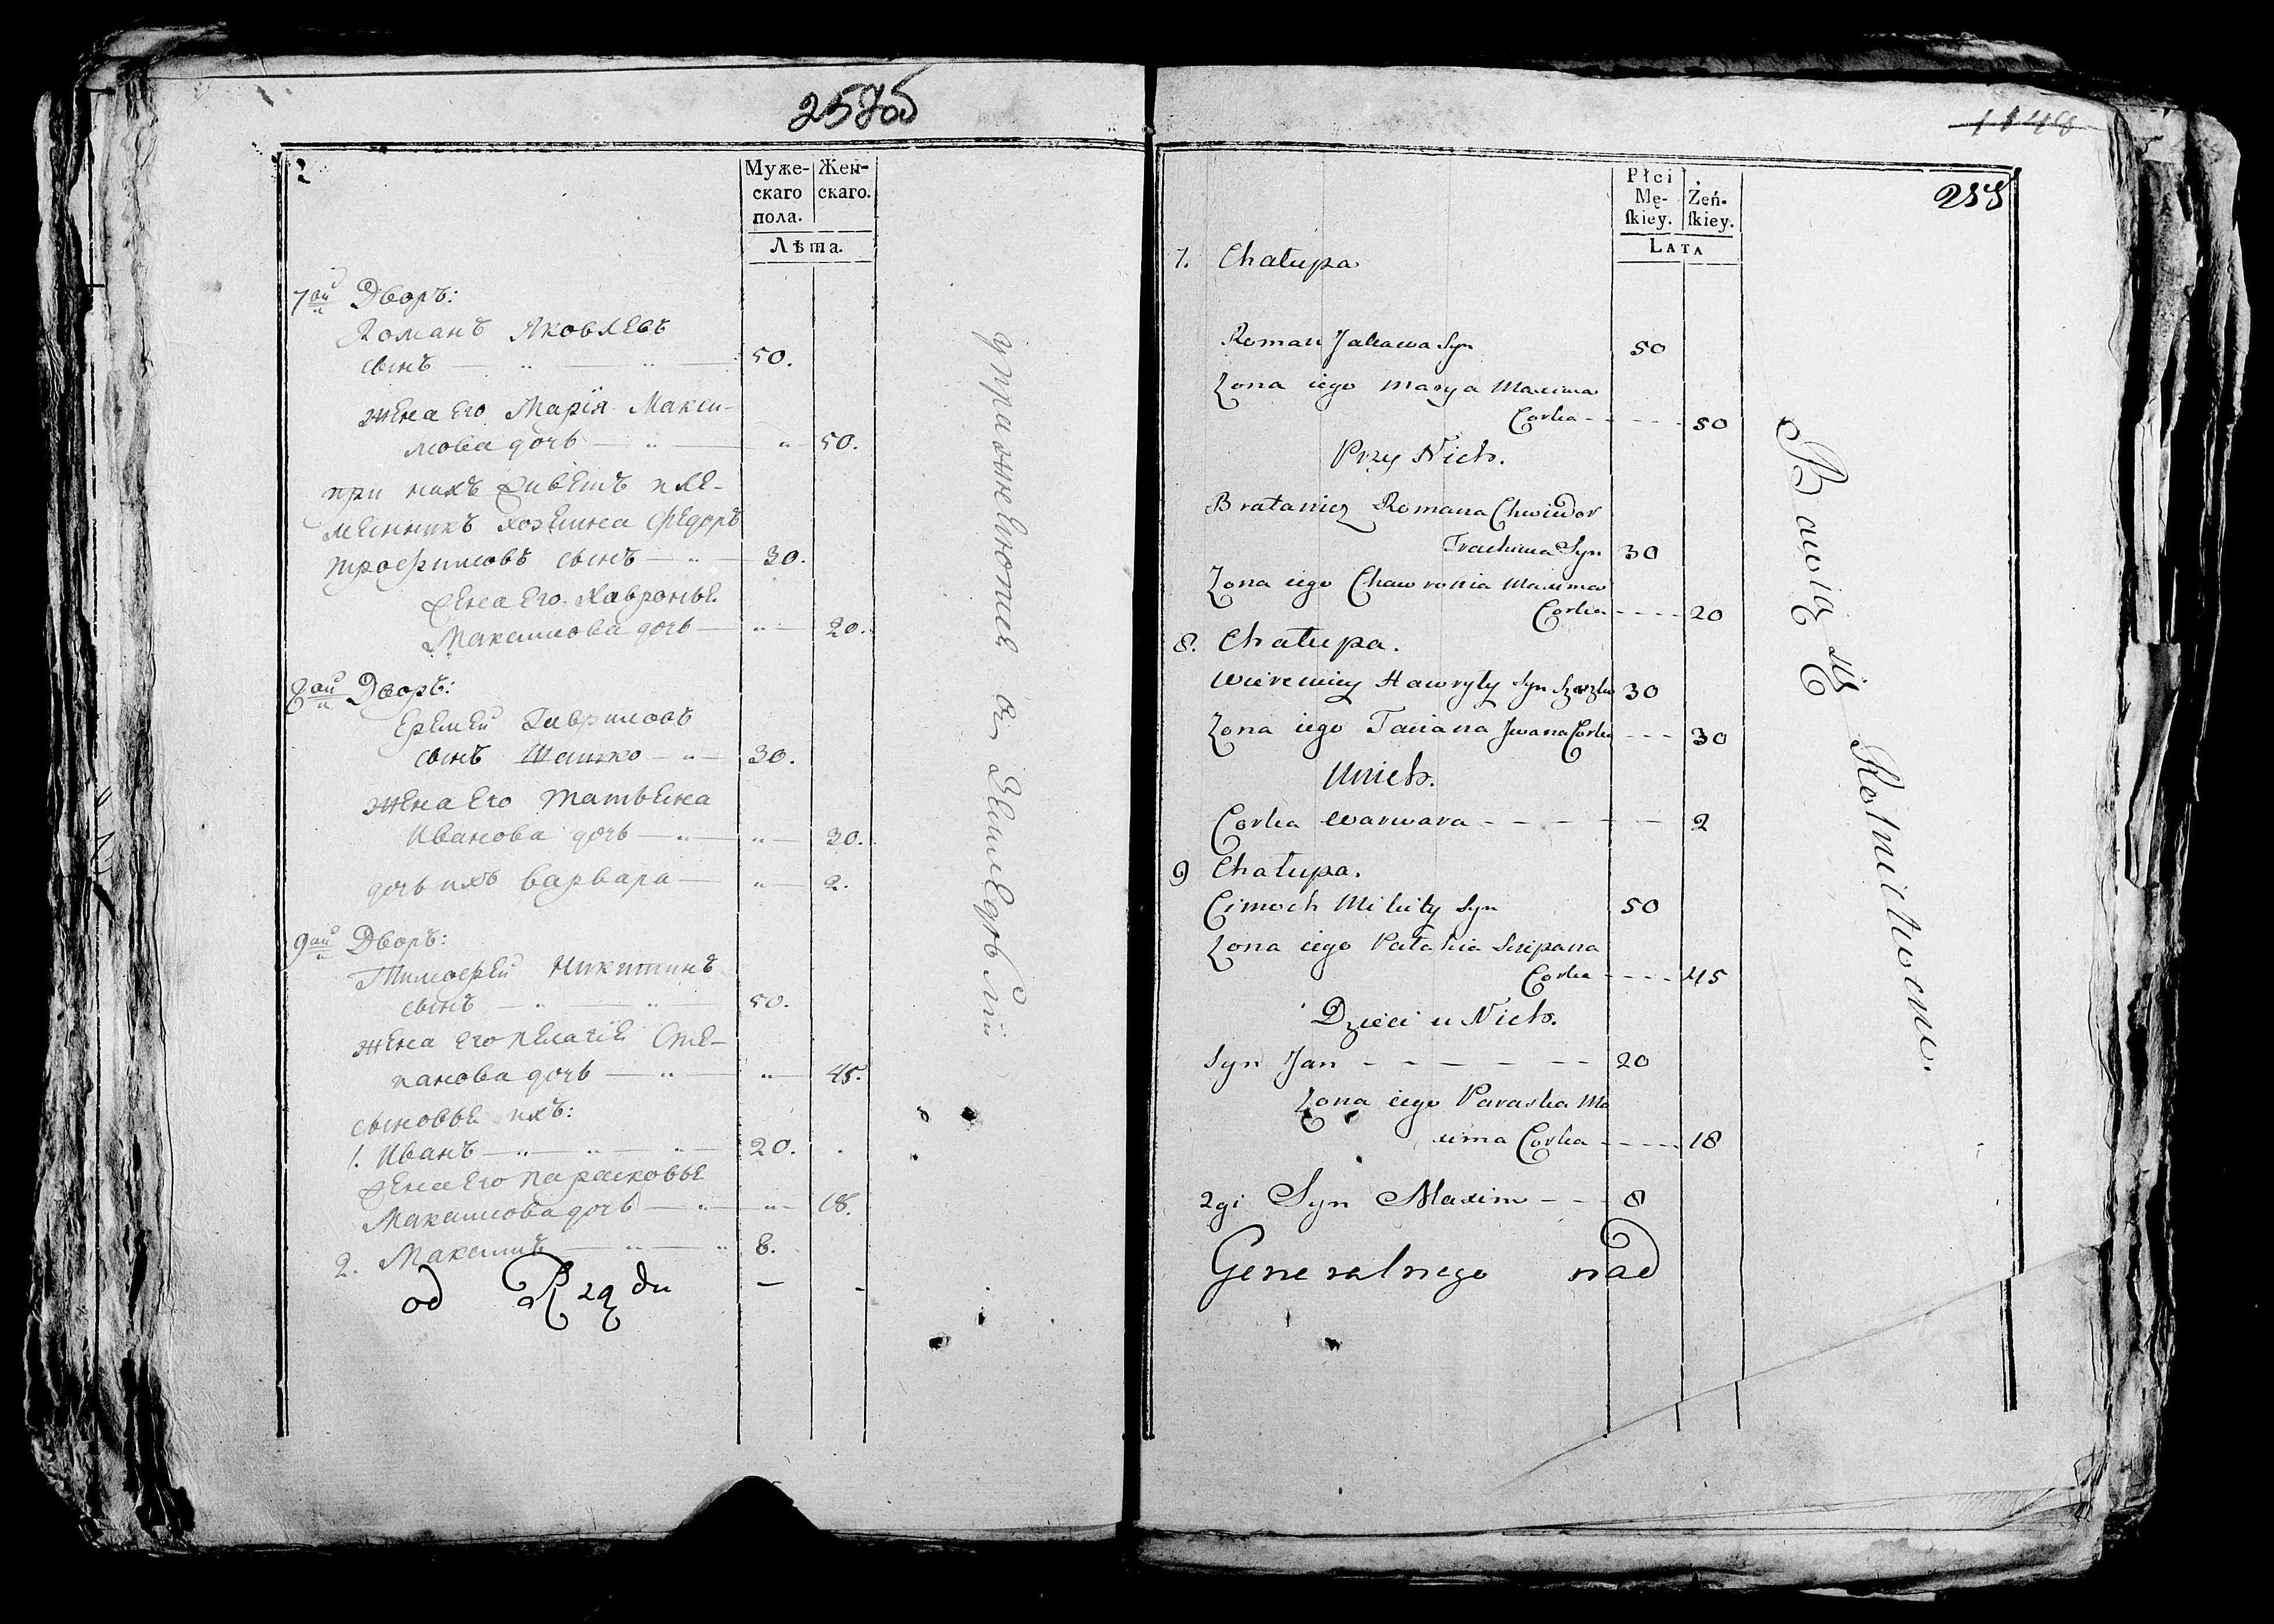 257об
2
Муже-
скаго
пола.
Жен-
скаго.
Лѣта.
7ой Дворъ:
Романъ Яковлевъ
сынъ — „ — „ — 50.
жена Его Марїя Макси-
мова дочь — „ — „ — 50.
при нихъ живетъ пле-
менникъ хозяина Федоръ
трофимовъ сынъ — „ — 30.
жена Его Хавронья
Максимова дочь — „ — 20.
8ой Дворъ:
Еремей Гавриловъ
сынъ Шашко — „ — 30.
жена Его татьяна
Иванова дочь — „ — „ — 30.
дочь ихъ варвара — „ — 2.
9ой Дворъ:
Тимофей Никитинъ
сынъ — „ — „ — 50.
жена Его пелагїя Сте-
панова дочь — „ — „ — 45.
сыновья ихъ:
1. Иванъ — „ — „ — „ — 20.
жена Его парасковья
Максимова дочь — „ — „ — 18.
2. Максимъ — „ — „ 8.
od Rządu — -
упражняются въ Земледѣлїи
1148
255
Płci
Mę-
ſkiey.
Żeń-
ſkiey.
LATA
7. Chałupa
Roman Jakawa Syn 50
Zona iego Marya Maxima
Corka - - - - 50
Przy Nich.
Bratanicz Romana Chwiedor
Trachima Syn 30
Zona iego Chawronia Maxima
Corka - - - - 20
8. Chałupa.
Wieremiey Hawryły Syn Szaszko 30
Zona iego Taciana Jwana Corka - - - 30
Unich.
Corka Warwara - - - - - 2
9 Chałupa.
Cimoch Mikity Syn 50
Zona iego Pałahia Sciepana
Corka - - - - 45
Dzieci u Nich.
Syn Jan - - - - - - 20
Zona iego Paraska Ma
xima Corka - - - - 18
2gi Syn Maxim - - 8
Generalnego nad
Bawią się Rolnictwem.